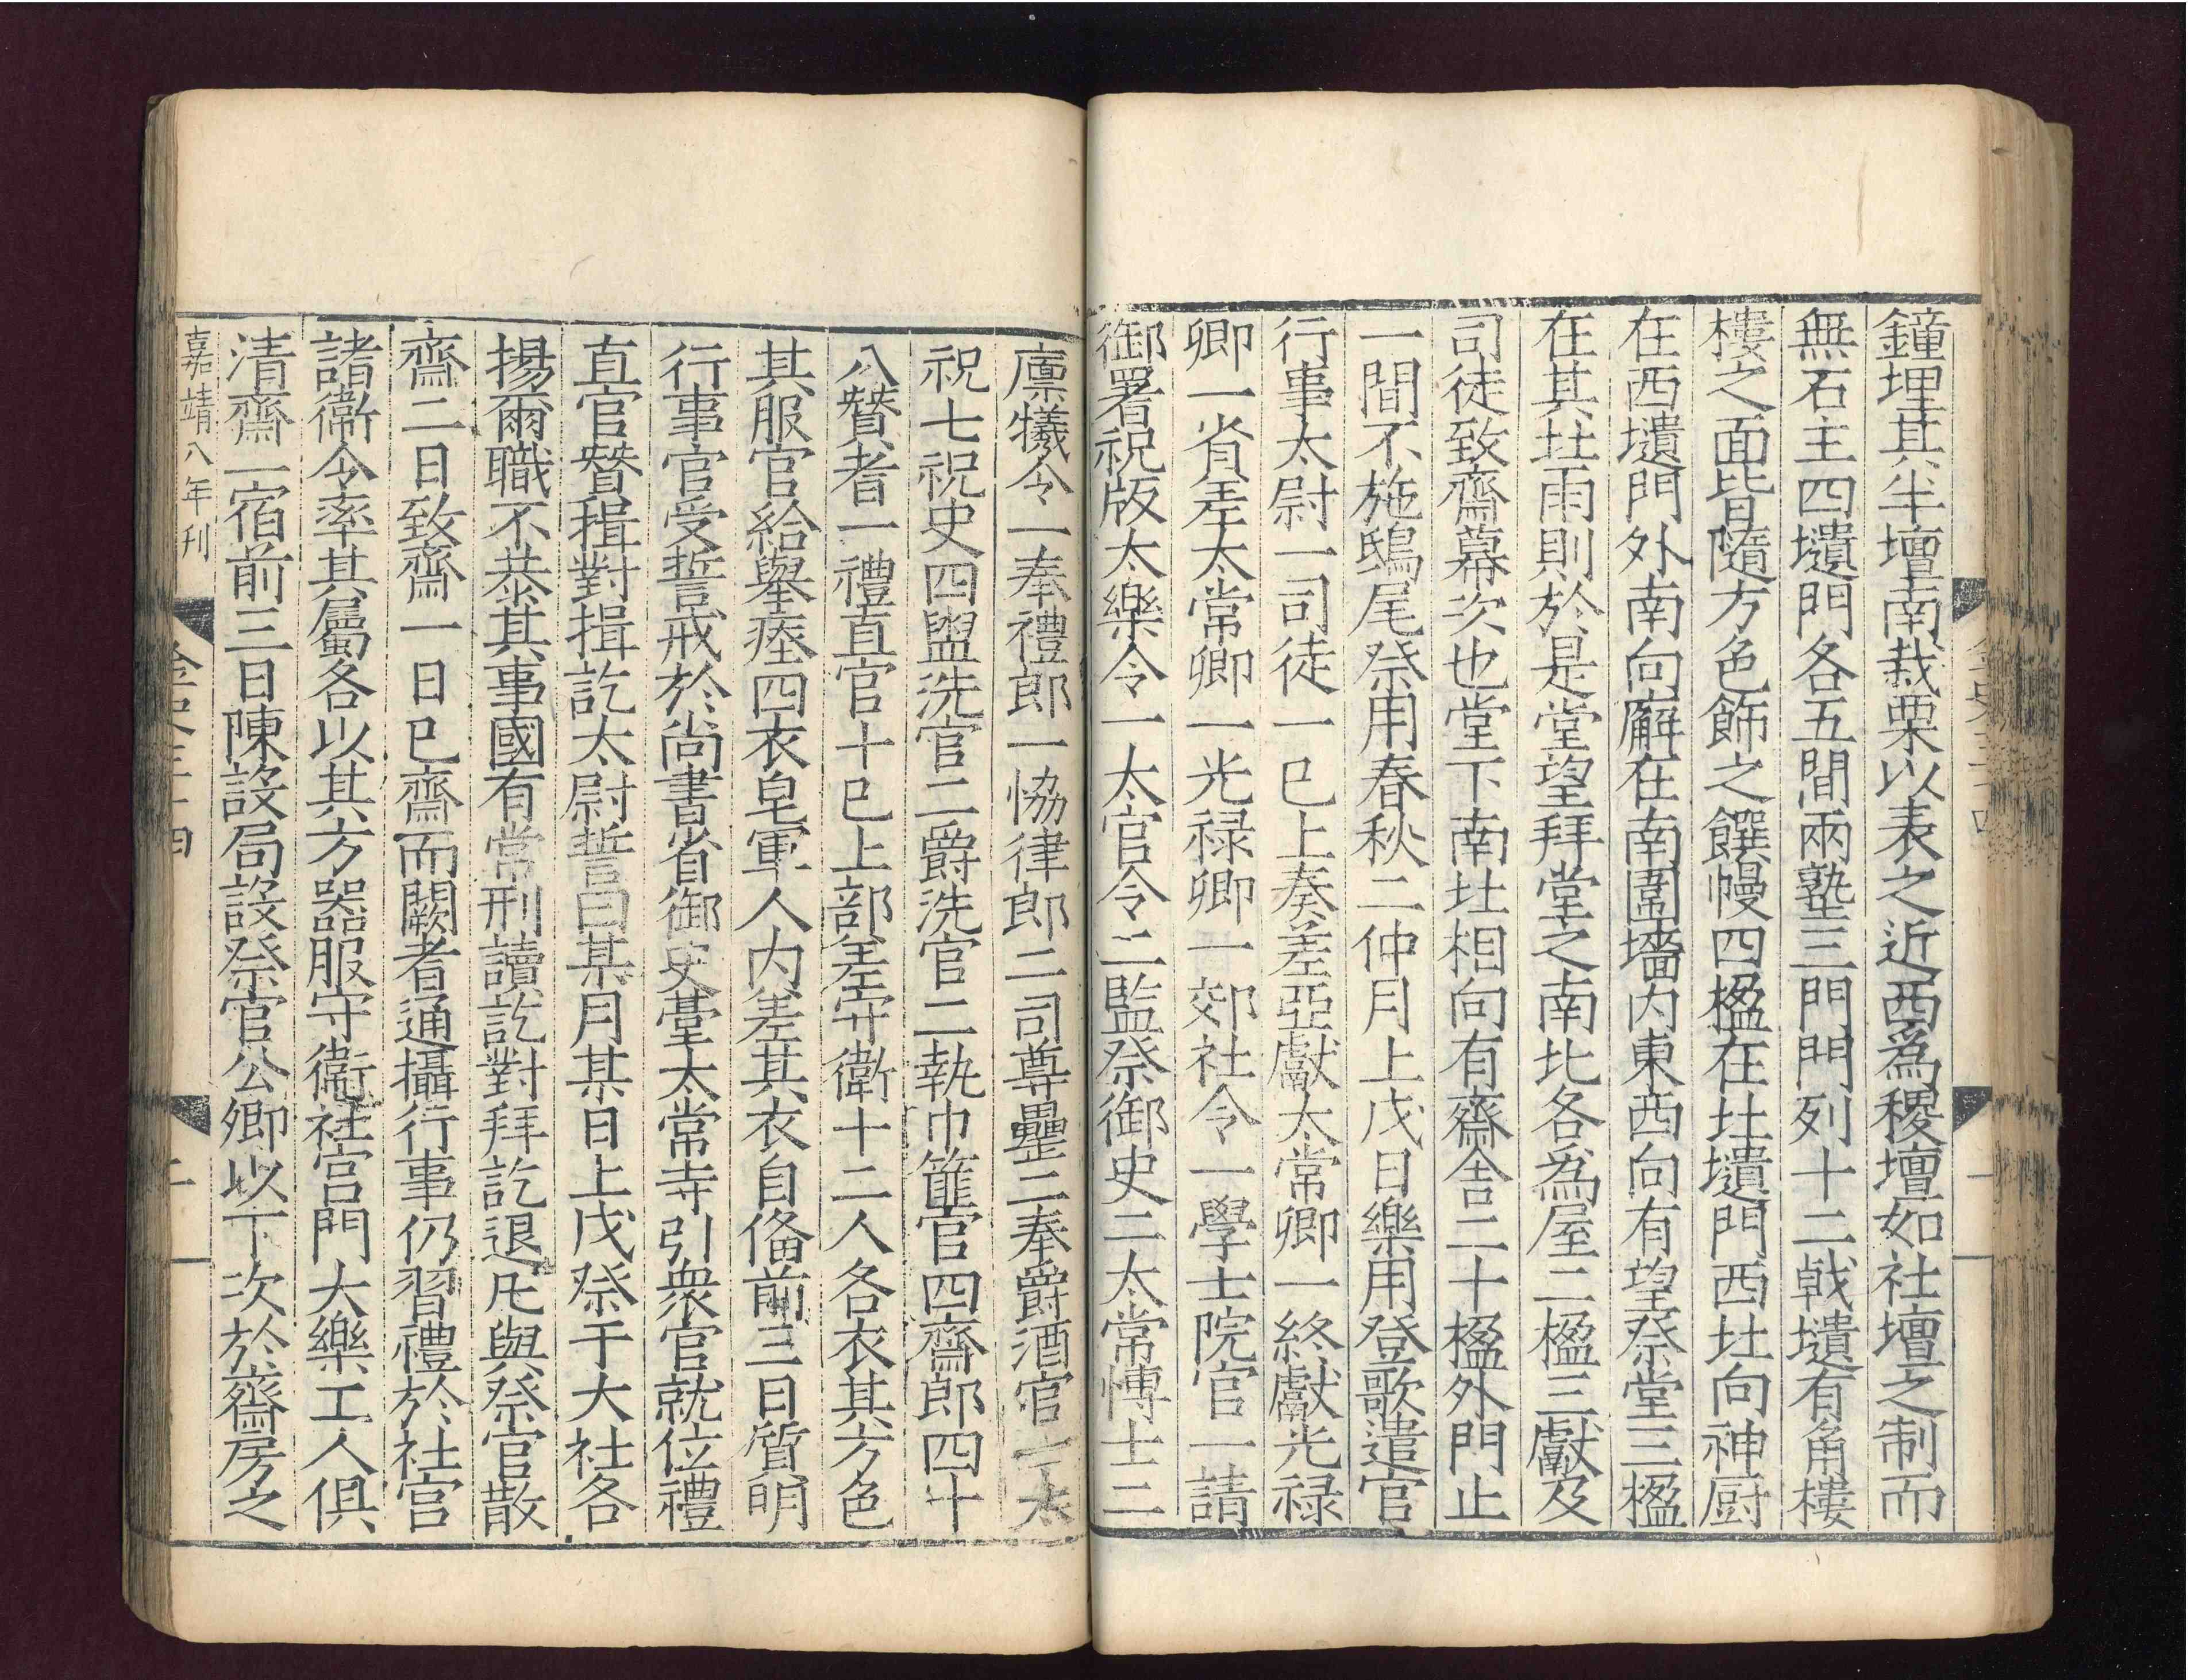 鐘埋其半壇南栽栗以表之近西爲稷壇如社壇之制而
無石主四壝門各五間兩塾三門門列十二戟壝有角樓
樓之面皆隨方色飾之饌幔四楹在北壝門西北向神厨
在西壝門外南向廨在南圍墻内東西向有望祭堂三楹
在其北雨則於是堂望拜堂之南北各爲屋二楹三獻及
司徒致齋幕次也堂下南北相向有齋舎二十楹外門止
一間不施鴟尾祭用春秋二仲月上戊日樂用登歌遣官
行事太尉一司徒一已上奏差亞獻太常卿一終獻光禄
卿一省差太常卿一光禄卿一郊社令一學士院官一請
御署祝版太樂令一太官令二監祭御史二太常愽士二
廪犧令一奉禮郎一恊律郎二司尊罍二奉爵酒官一太
祝七祝史四盥洗官二爵洗官二執巾篚官四齋郎四十
八贊者一禮直官十已上部差守衛十二人各衣其方色
其服官給舉瘞四衣皂軍人内差其衣自俻前三日質明
行事官受誓戒於尚書省御史臺太常寺引衆官就位禮
直官贊揖對揖訖太尉誓曰某月某日上戊祭于大社各
揚爾職不恭其事國有常刑讀訖對拜訖退凡與祭官散
齋二日致齋一日已齋而闕者通攝行事仍習禮於社宫
諸衞令率其屬各以其方器服守衞社宫門大樂工人俱
清齋一宿前三日陳設局設祭官公卿以下次於齋房之
嘉靖八年刊